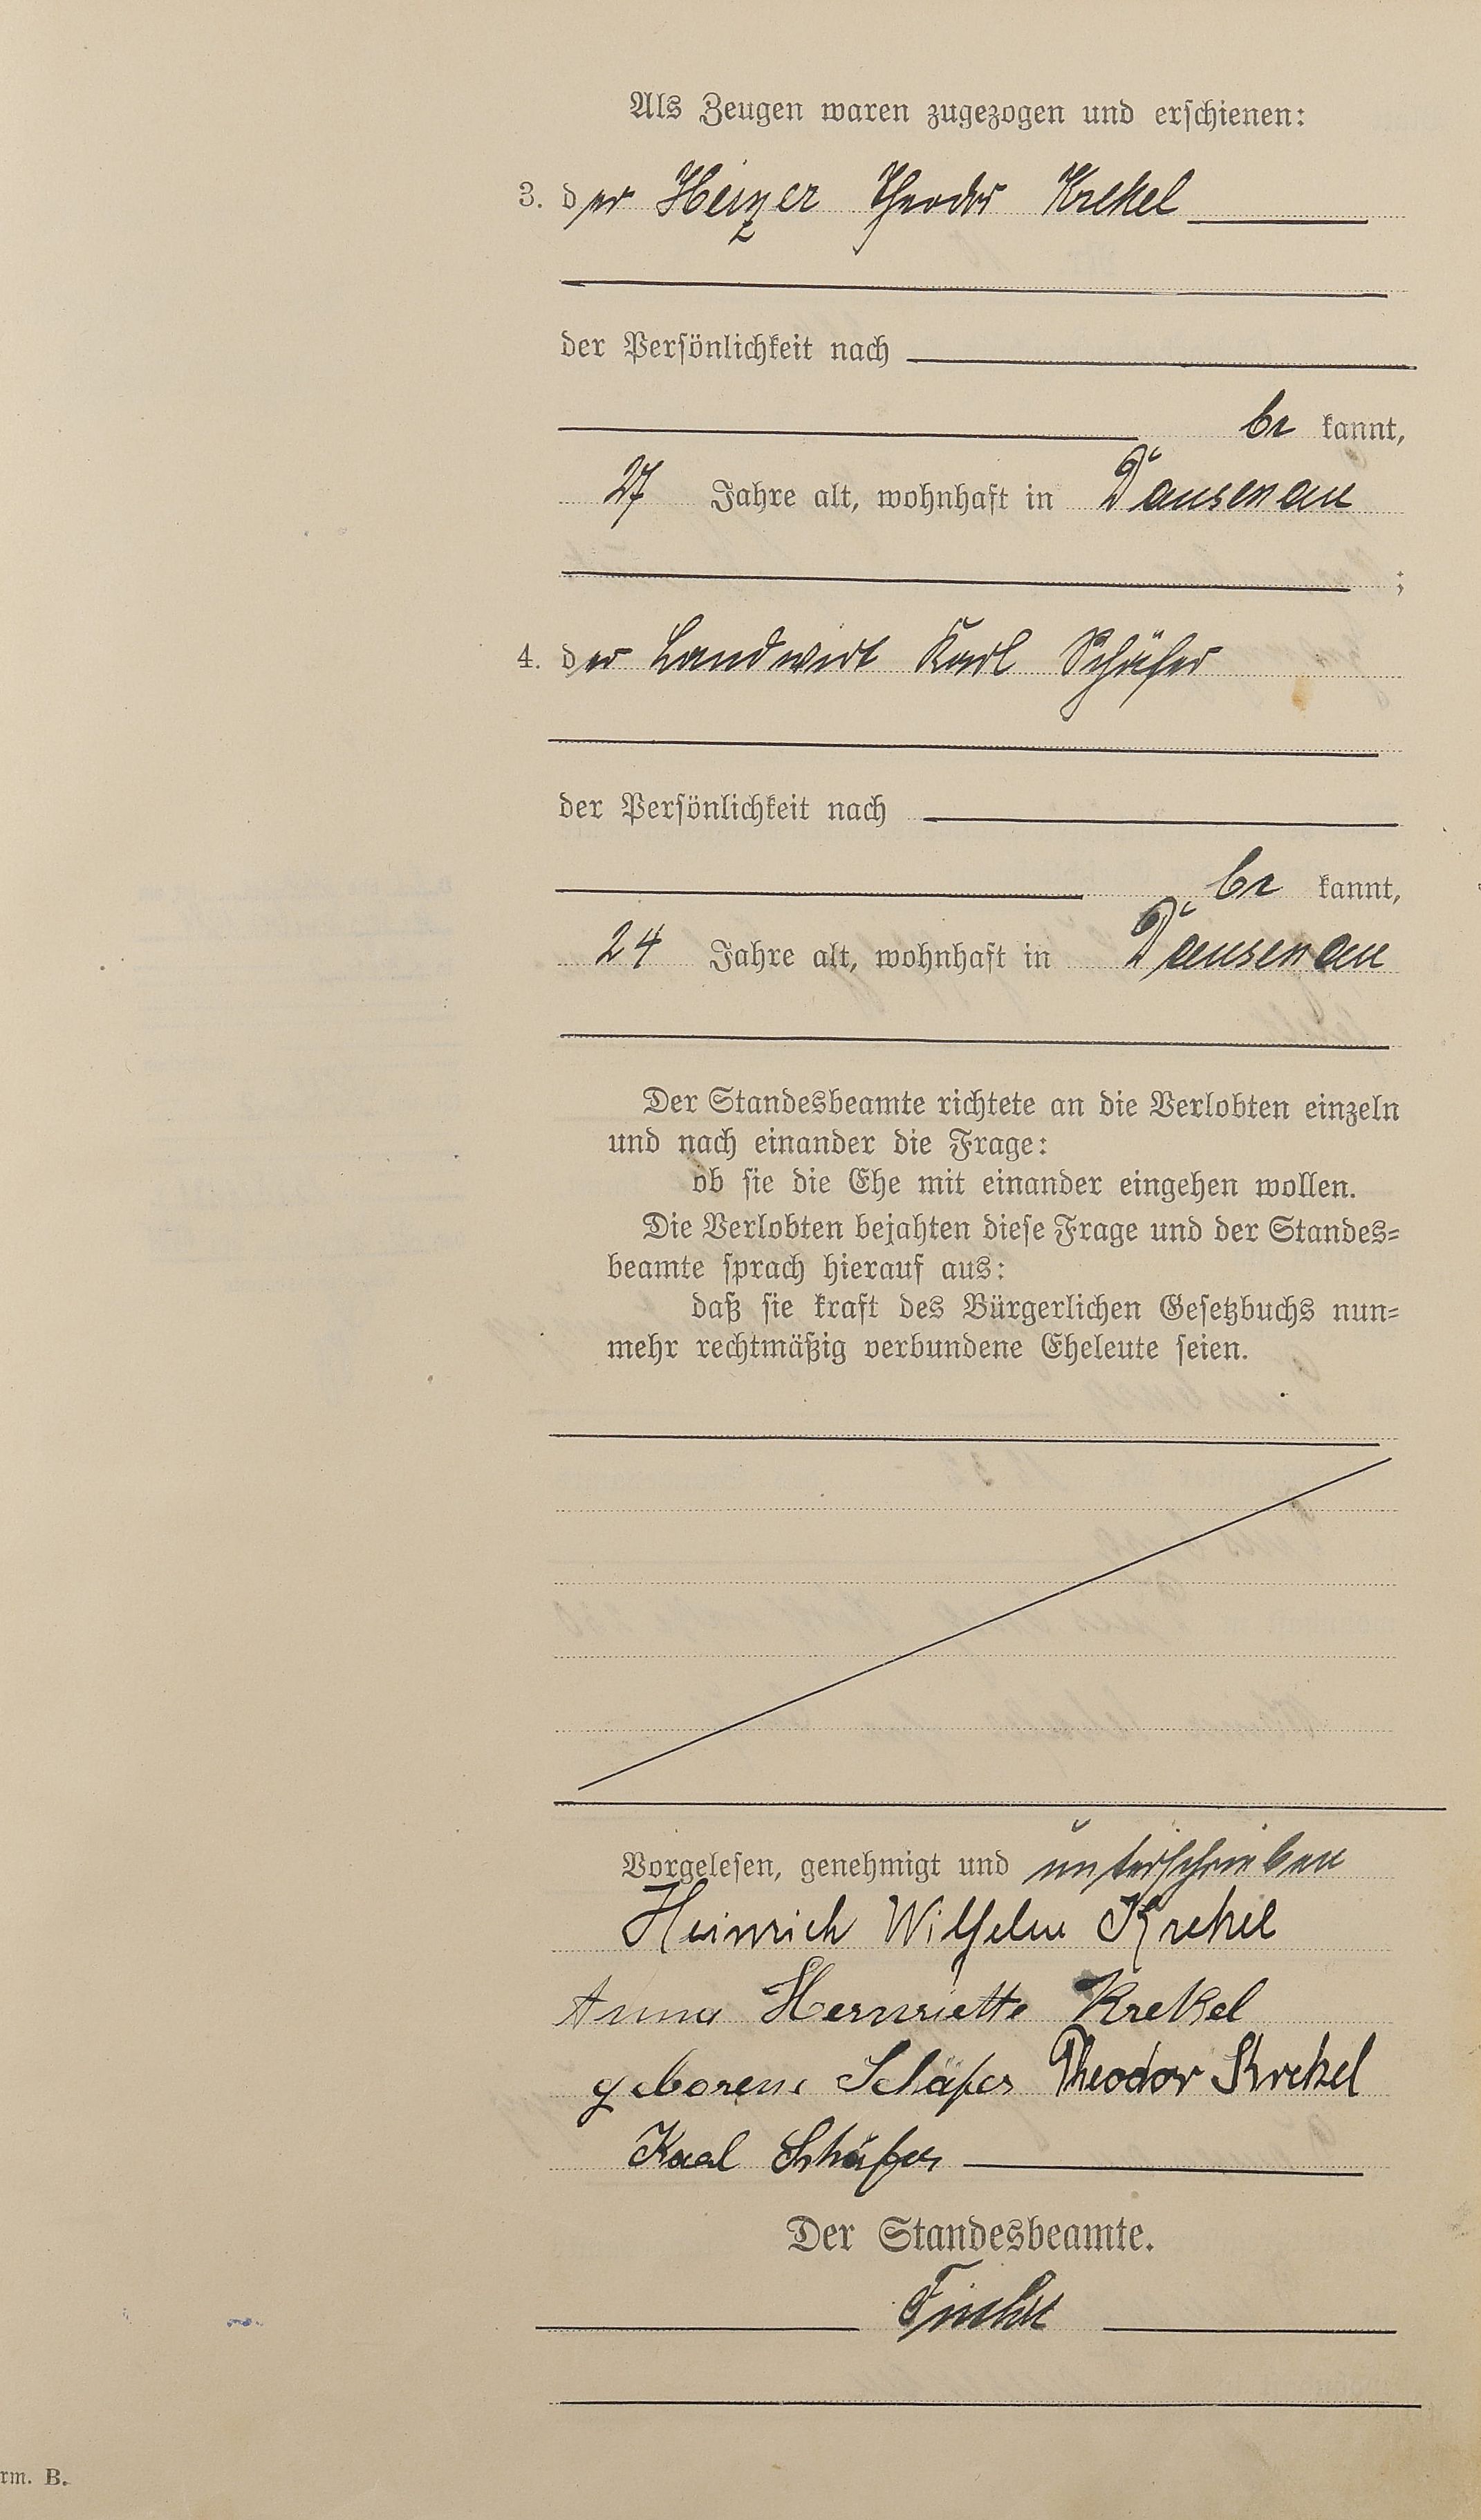 Als Zeugen waren zugezogen und erschienen:
3. der Heizer Theodor Krekel
der Persönlichkeit nach
be kannt,
27 Jahre alt, wohnhaft in Dausenau
;
4. der Landwirt Karl Schäfer
der Persönlichkeit nach
be kannt,
24 Jahre alt, wohnhaft in Dausenau
Der Standesbeamte richtete an die Verlobten einzeln
und nach einander die Frage:
ob sie die Ehe mit einander eingehen wollen.
Die Verlobten bejahten diese Frage und der Standes=
beamte sprach hierauf aus:
daß sie kraft des Bürgerlichen Gesetzbuchs nun=
mehr rechtmäßig verbundene Eheleute seien.
Vorgelesen, genehmigt und unterschrieben
Heinrich Wilhelm Krekel
Anna Henriette Krekel
geborene Schäfer Theodor Krekel
Karl Schäfer
Der Standesbeamte.
rm. B.